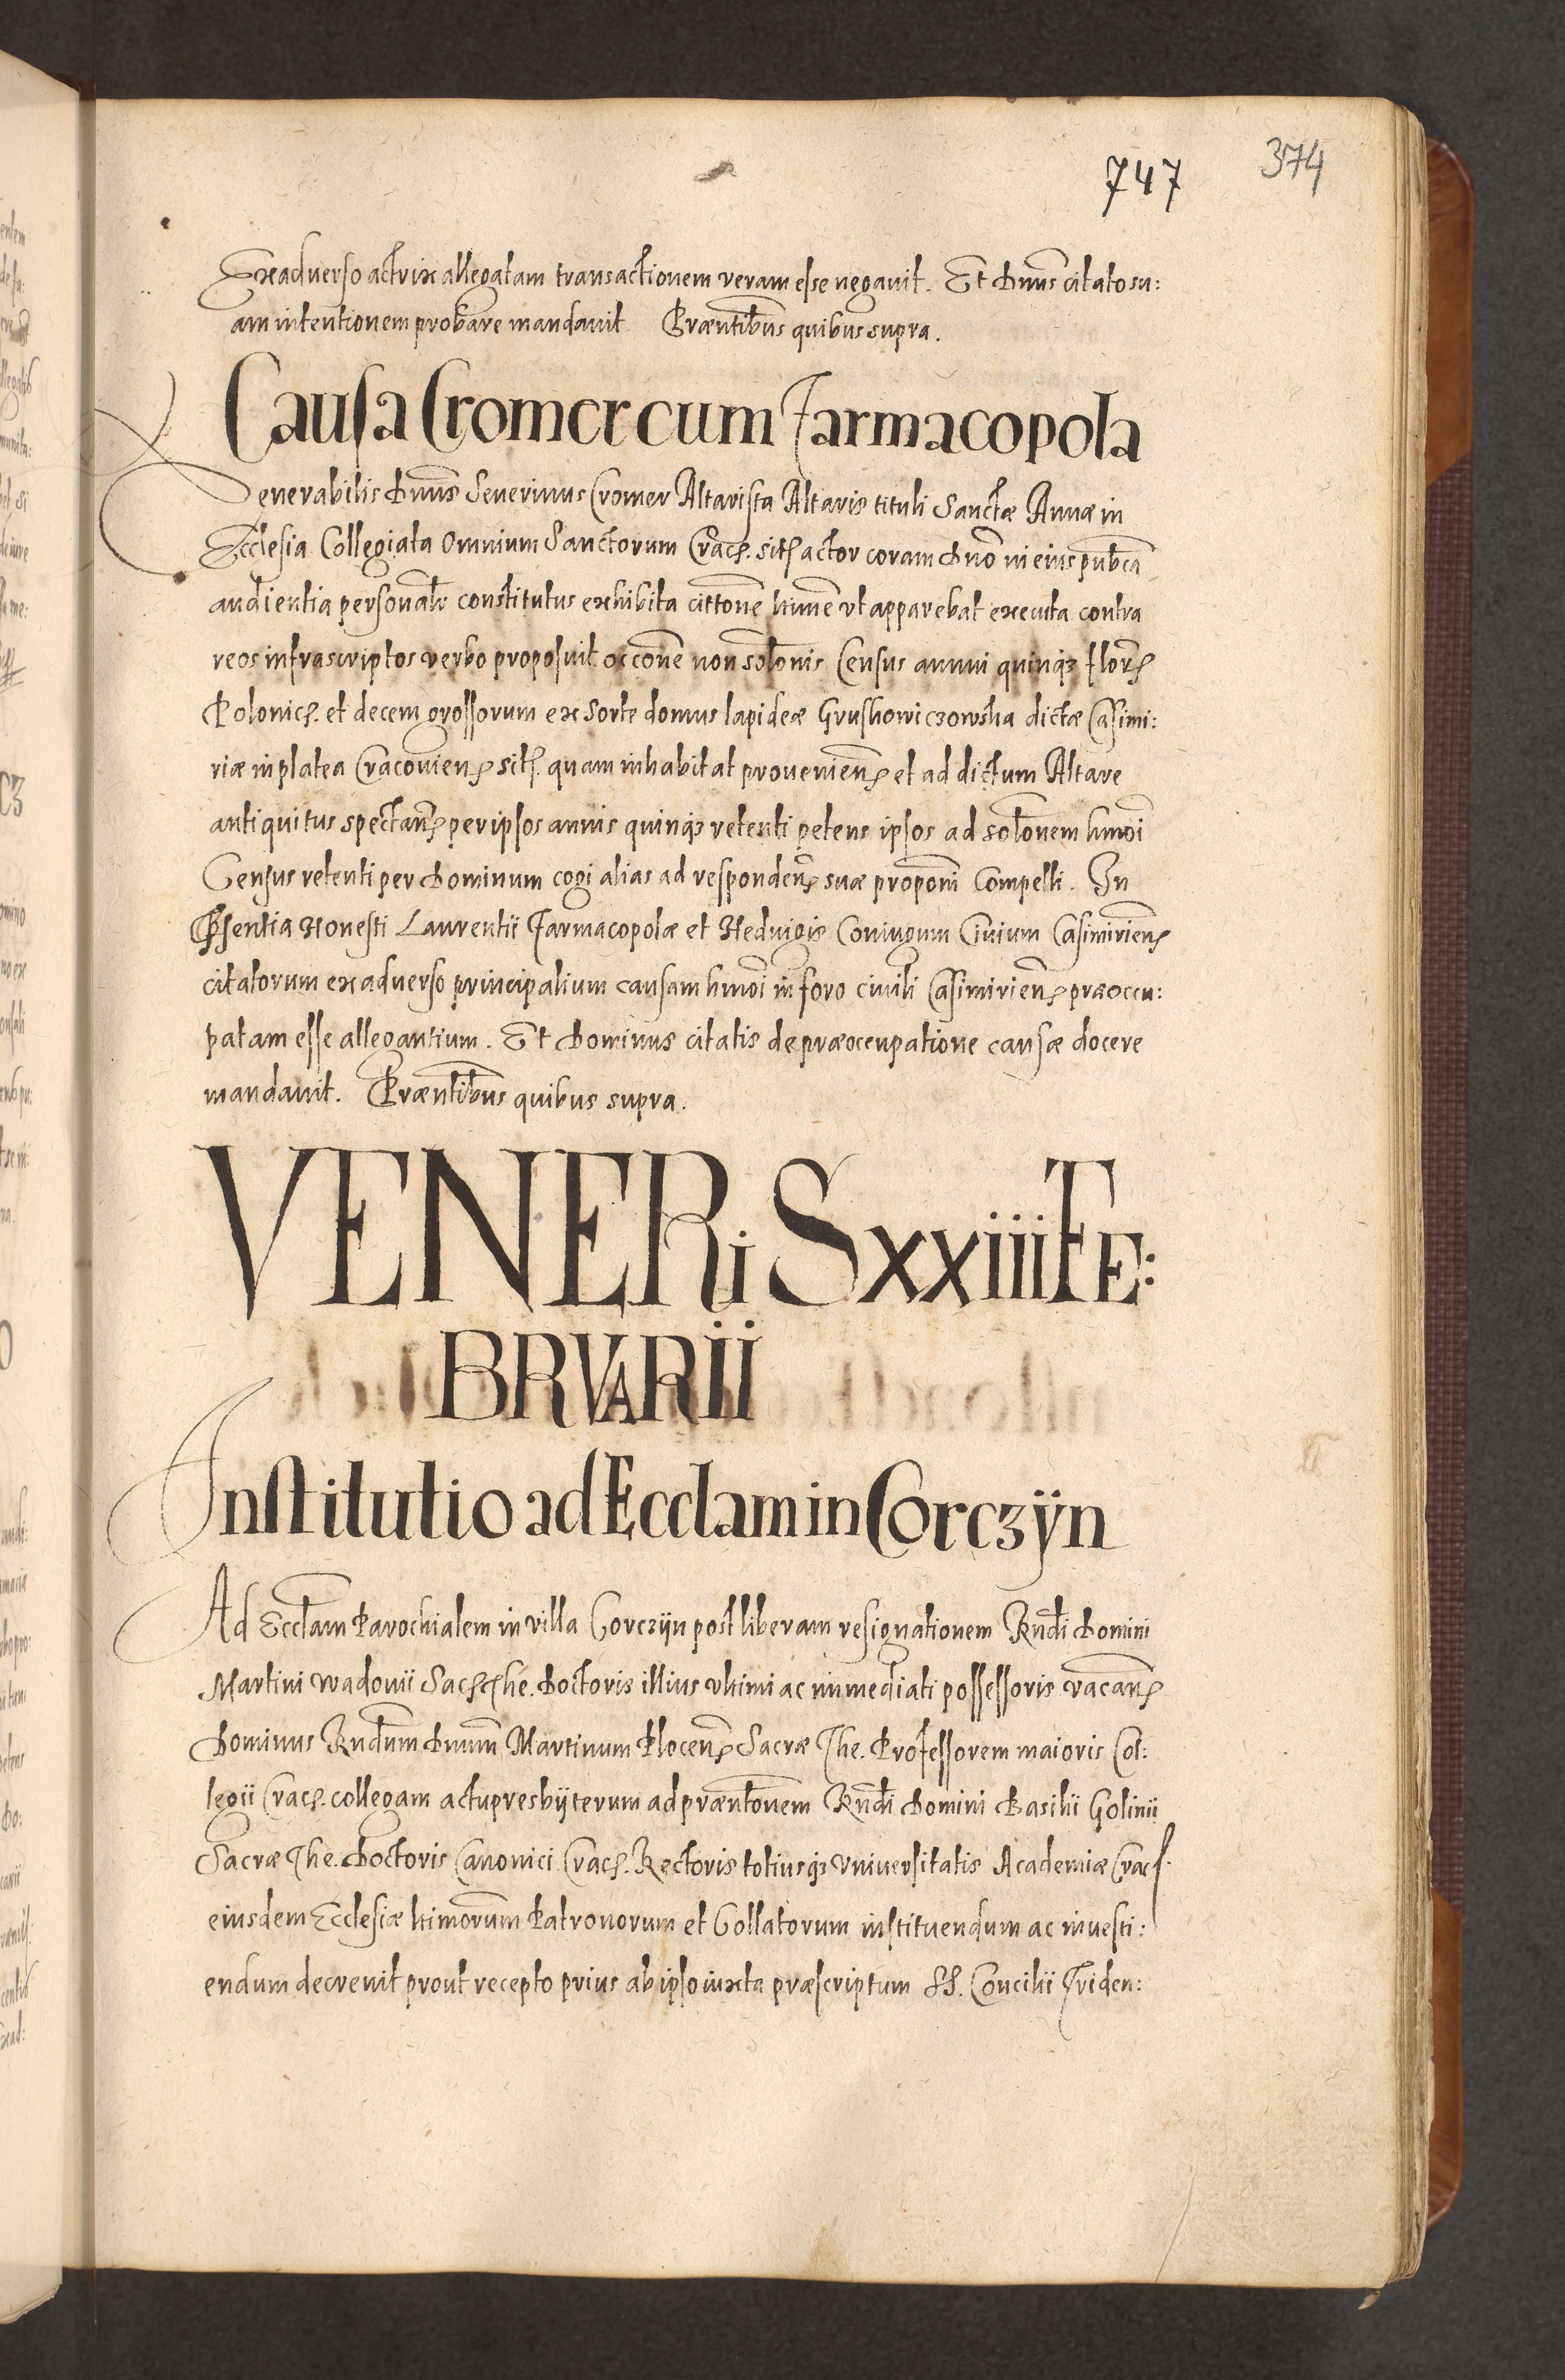 747 374
Exaduerso actrix allegatam transactionem veram esse negauit. Et Dnus citato su:
am intentionem probare mandauit Præntibus quibus supra.
Causa Cromer cum Farmacopola
Venerabilis Dnus Seuerinus Cromer Altarista Altaris tituli Sanctæ Annæ in
Ecclesia Collegiata Omnium Sanctorum Crac. sit actor coram Dno in eius pubca
audientia personalr constitutus exhibita cittone ltime vt apparebat executa contra
reos infrascriptos verbo proposuit occone non solonis Census annui quinqz flor
Polonic. et decem grossorum ex sorte domus lapideæ Grushowiczowska dictæ Casimi:
riæ in platea Cracouien sit. quam inhabitat prouenien et ad dictum Altare
antiquitus spectan per ipsos annis quinqz retenti petens ipsos ad solonem hmoi
Census retenti per Dominum cogi alias ad responden suæ proponi Compelli. In
Psentia Honesti Laurentii Farmacopolæ et Heduigis Coniugum Ciuium Casimirien
citatorum exaduerso principalium causam hmoi in foro ciuili Casimirien præoccu:
patam esse allegantium. Et Dominus citatis de præocupatione causæ docere
mandauit. Præntibus quibus supra.
VENERiS xxiii FE:
BRVARii
Institutio ad Ecclam in Corczÿn
Ad Ecclam Parochialem in villa Corczÿn post liberam resignationem Rndi Domini
Martini Wadouii Sac. The. Doctoris illius vltimi ac immediati possessoris vacan
Dominus Rndum Dnum Martinum Plocen Sacræ The. Professorem maioris Col:
legii Crac. collegam actu presbÿterum ad præntonem Rndi Domini Basilii Golinii
Sacræ The. Doctoris Canonici Crac. Rectoris totiusqz Vniuersitatis Academiæ Crac.
eiusdem Ecclesiæ ltimorum Patronorum et Collatorum instituendum ac inuesti:
endum decreuit prout recepto prius ab ipso iuxta præscriptum SS. Concilii Triden: